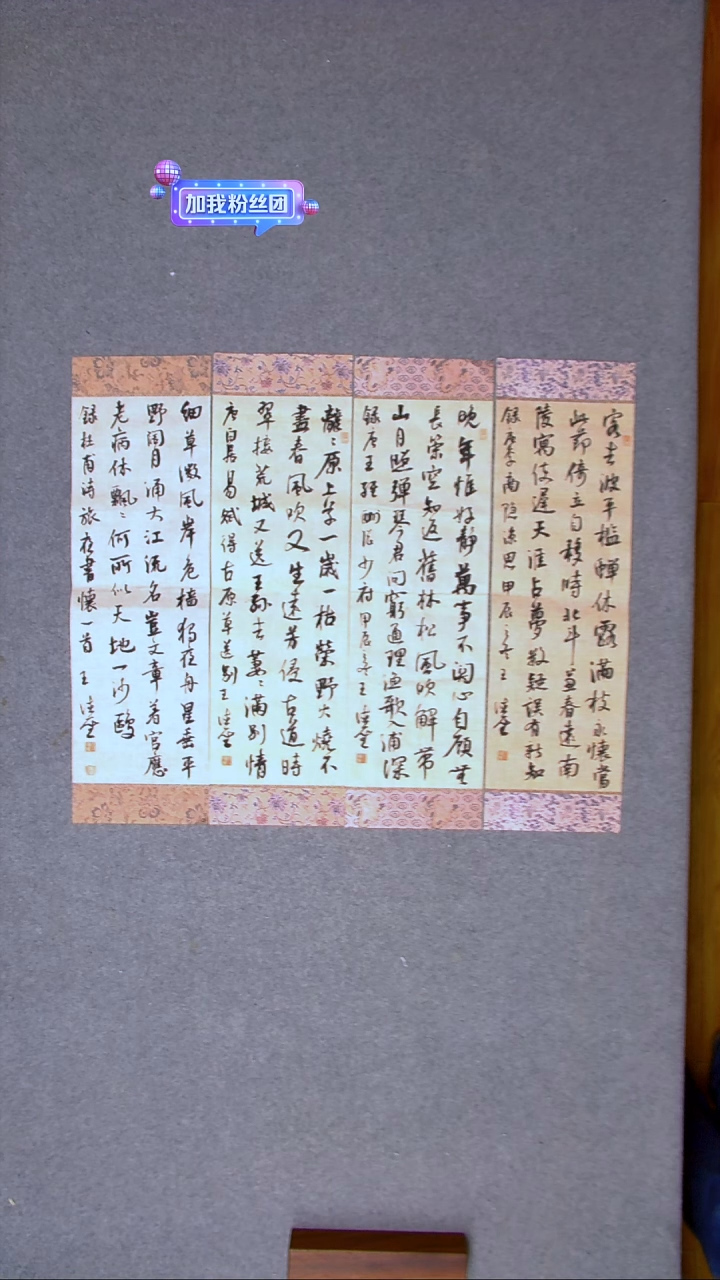 加我粉丝团
客去波平檻蟬休露滿枝永懷當
此節倚立自移時北斗兼春遠南
陵寓使遲天涯占夢數疑誤有新知
録唐李商隐凉思甲辰之冬王
晚年惟好靜萬事不関心自顧無
長策空知返舊林松風吹解帶
山月照彈琴君問窮通理漁歌入浦深
録唐王維酬張少府甲辰之冬王
離〻原上草一歲一枯榮野火燒不
盡春風吹又生遠芳侵古道晴
翠接荒城又送王孫去萋〻滿別情
唐白居易賦得古原草送別王
細草微風岸危檣獨夜舟星垂平
野闊月涌大江流名豈文章著官應
老病休飄〻何所似天地一沙鷗
録杜甫詩旅夜書懷一首王